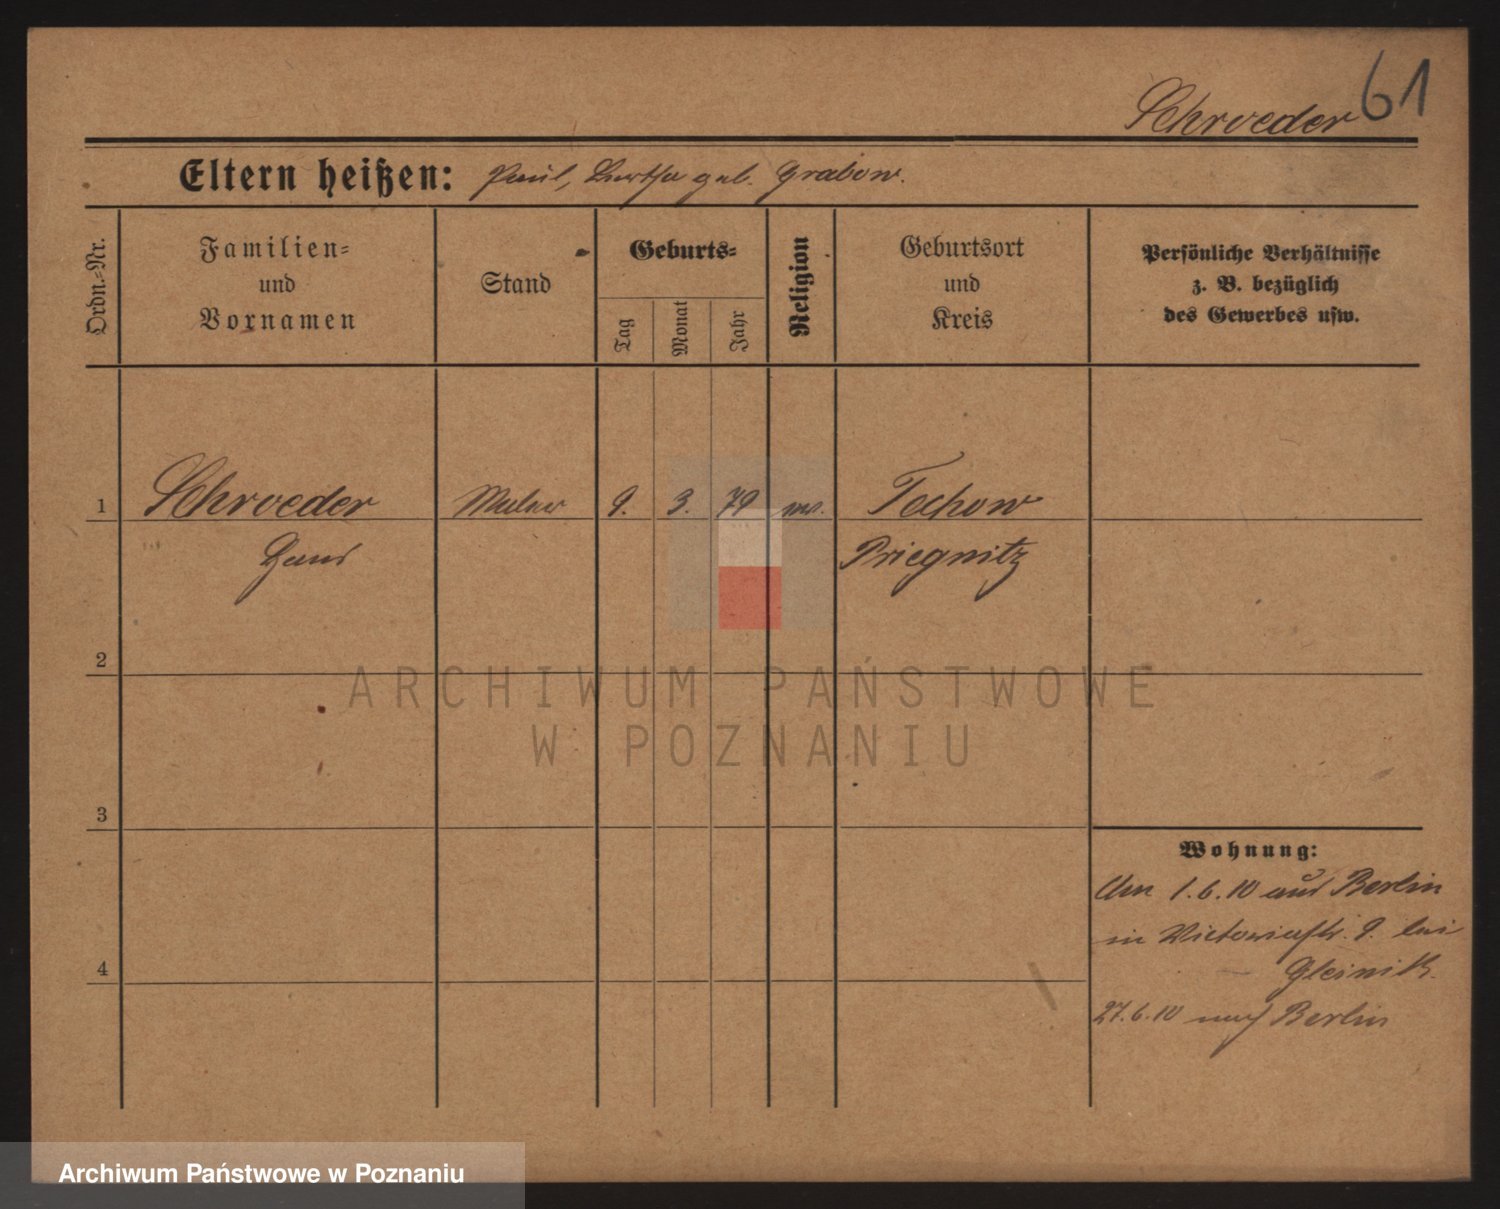 61
Schroeder
Eltern heißen: Paul, Bertha geb. Grabow.
Ordn.=Nr.
Familien=
und
Vornamen
Stand
Geburts=
Tag
Monat
Jahr
Religion
Geburtsort
und
Kreis
Persönliche Verhältnisse
z. B. bezüglich
des Gewerbes usw.
1 Schroeder Maler 9. 3. 79 ev. Techow
Hans Priegnitz
2
3
4
Wohnung:
Am 1.6.10 aus Berlin
in Victoriastr. 9. bei
27.6.10 nach Berlin
ARCHIWUM PAŃSTWOWE
W POZNANIU
Archiwum Państwowe w Poznaniu